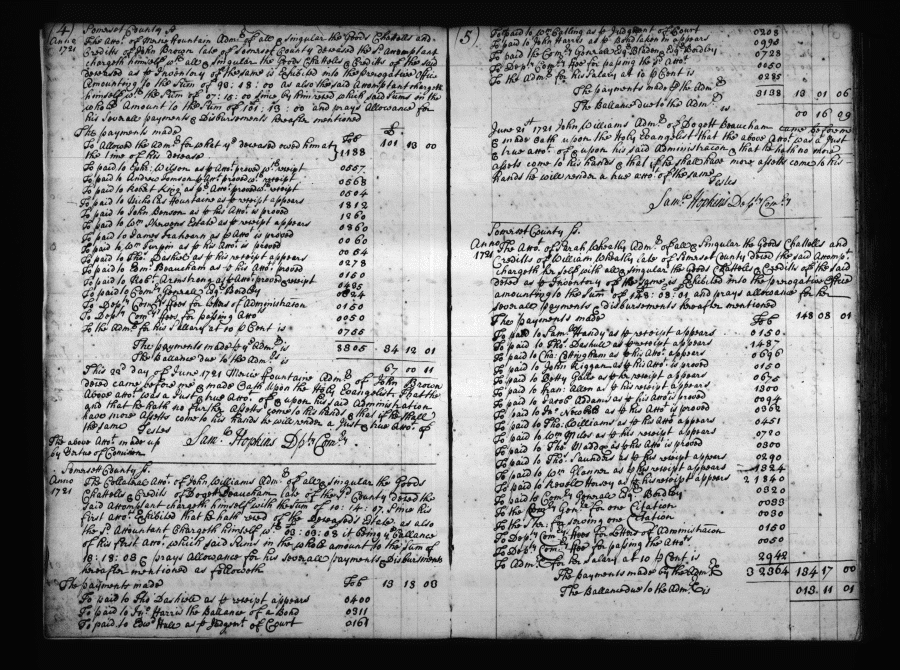 (4)
Anno
1721
Somerset County ss.
The Accot. of Mercie Fountain Admx. of all & singular the Goods Chattells and
Credits of John Brown late of Somerset County deceased the sd. Accomptant
chargeth himself wth. all & singular the Goods Chattells & Credits of the said
deceased as p Inventory of the same is Exhibited into the Prerogative Office
Amounting to the Sum of 90 : 18 : 00 As also the said Accomptant chargeth
himself wth. the Sum of 07 : 15 : 00 since which said sums in the
whole Amount to the Sum of 101 : 13 : 00 and prays Allowance for
his severall payments & Disbursements hereafter mentioned
The payments made Tob £
To Allowed the Admx. for what ye. deceased owed him at } 1188 101 13 00
the time of his decease
To paid to Eph: Wilson as p Accot. proved & receipt 0567
To paid to Andrew Tomson p Accot. proved & receipt 0568
To paid to Robert King as p Accot. proved & receipt 0504
To paid to Nicholas Fountaine as p receipt appears 1812
To paid to John Benson as p his Accot. is proved 1260
To paid to Wm. Stevens Estate as p receipt appears 0860
To paid to James as p Accot. is proved 0060
To paid to Wm. Turpin as p his Accot. is proved 0064
To paid to Tho: Dashiel as p his receipt appears 0278
To paid to Edm: Beaucham as p his Accot. proved 0150
To paid to Robt. Armstrong as p Accot. proved & receipt 0485
To paid to Comy. Genrall Esqr. Bordley 0824
To Depty. Comys. fees for Letters of Administracon 0150
To Depty. Comys. fees for passing Accot. 0050
To the Admx. for his Sallary at 10 p Cent is 0755
The payments made by ye. Admx. is 3805 34 12 01
The Ballance due to the Admx. is 67 00 11
This 22d. day of June 1721 Mercie Fountaine Admx. of John Brown
deced came before me & made Oath upon the Holy Evangelist that the
Above Accot. was a Just & true Accot. of & upon his said Administration
and that he hath no further Assetts come to his hands & that if he shall
have more Assetts come to his hands he will render a Just & true Accot. of
the same Testes
Sam: Hopkins Dpty Comry
The above Accot. made up
by Vertue of Comission
Anno
1721
Somersett County ss.
The Collateral Accot. of John Williams Admr. of all & singular the Goods
Chattells & Credits of Dogett Beaucham late of the sd. County deced the
Said Accomptant chargeth himself with the sum of 10 : 14 : 07 Since his
first Accot. Exhibited that he hath recd. of the Deceaseds Estate as also
the sd. Accountant Chargeth himself wth. 03 : 03 : 08 it being a Ballance
of his first Accot. which said Sums in the whole amount to the Sum of
13 : 18 : 03 & prays allowance for his severall payments & Disbursments
hereafter mentioned as followeth
The payments made Tob 13 18 03
To paid to Tho Dashiell as p receipt appears 0400
To paid to Jno. Harris the Ballance of a bond 0311
To paid to Edwd. Hall as p Judgmt. of Court 0161
(5)
To paid to Wm. Polling as p Judgment of Court 0208
To paid to John Harris as p Bond taken in appears 0998
To paid the Comry. Genrall Esqr. Bladen Esqr. Bordley 0723
To Depty. Comry. fees for passing the sd. Accot. 0050
To the Admr. for his Sallary at 10 p Cent is 0285
The payments made by the Admr. 3138 13 01 06
The Ballance due to the Admr. is 00 16 29
June 21st 1721 John Williams Admr. of Dogett Beaucham came before me
& made Oath upon the Holy Evangelist that the above Accot. was a Just
& true Accot. of & upon his said Administracon & that he hath no more
Assetts come to his hands & that if he shall have more assetts come to his
hands he will render a true Accot. of the same
Testes
Saml. Hopkins Depty Comry
Somersett County ss.
Anno
1721
The Accot. of Sarah Wheatly Admx. of all & Singular the Goods Chattells and
Credits of William Wheatly late of Somerset County deced the said Accompt.
chargeth her self with all & singular the Goods Chattells & Credits of the said
deced as p Inventory of the same is Exhibited into the prerogative Office
amounting to the Sum of 148 : 08 : 01 and prays allowance for her
severall payments & Disbursements hereafter mentioned
The payments made Tob 148 08 01
To paid to Saml. Handy as p receipt appears 0150
To paid to Tho: Dashiell as p receipt appears 1487
To paid to Cha: Cottingham as p his Accot. appears 0696
To paid to John Riggan as p his Accot. is proved 0150
To paid to Betty Gilles as p her receipt appears 0675
To paid to Fran: Allen as p his receipt appears 1800
To paid to Jacob Adams as p his Accot. is proved 0094
To paid to Jno: as p his Accot. is proved 0362
To paid to Tho: Williams as p his Accot. appears 0451
To paid to Wm. Miles as p his Accot. is proved 0720
To paid to Tho: Maddox as p his Accot. is proved 0300
To paid to Tho: Saunders as p his receipt appears 0290
To paid to Wm. Planner as p his receipt appears 1324
To paid to Revell Horsey as p his receipt appears 21840
To paid to Comry. Genrall Esqr. Bordley 0320
To the Comry. Genll. for one Citation 0033
To the Sher. for serving one Citation 0030
To Depty. Comry. fees for Letters of Administracon 0150
To Depty. Comry. fees for passing the Accot. 0050
To Admx. for her Salary at 10 p Cent is 2942
The payments made by the Admx. 32364 134 17 00
The Ballance due to the Admx. is 013 11 01